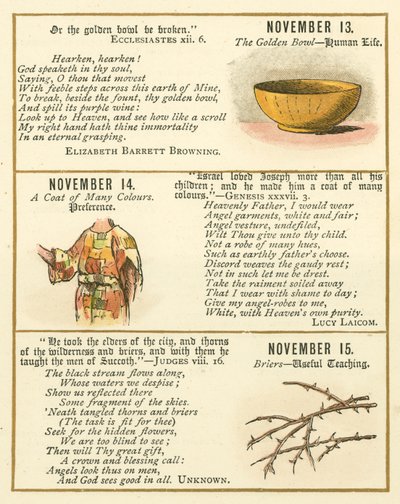 Or the golden bowl be broken."
ECCLESIASTES xii. 6.
Hearken, hearken!
God speaketh in thy soul,
Saying, O thou that movest
With feeble steps across this earth of Mine,
To break, beside the fount, thy golden bowl,
And spill its purple wine:
Look up to Heaven, and see how like a scroll
My right hand hath thine immortality
In an eternal grasping.
ELIZABETH BARRETT BROWNING.
NOVEMBER 13.
The Golden Bowl—Human Life.
NOVEMBER 14.
A Coat of Many Colours.
Preference.
"Israel loved Joseph more than all his
children; and he made him a coat of many
colours."—GENESIS xxxvii. 3.
Heavenly Father, I would wear
Angel garments, white and fair;
Angel vesture, undefiled,
Wilt Thou give unto thy child.
Not a robe of many hues,
Such as earthly father's choose.
Discord weaves the gaudy rest;
Not in such let me be drest.
Take the raiment soiled away
That I wear with shame to day;
Give my angel-robes to me,
White, with Heaven's own purity.
LUCY LAICOM.
"He took the elders of the city, and thorns
of the wilderness and briers, and with them he
taught the men of Succoth."—JUDGES viii. 16.
The black stream flows along,
Whose waters we despise;
Show us reflected there
Some fragment of the skies.
'Neath tangled thorns and briers
(The task is fit for thee)
Seek for the hidden flowers,
We are too blind to see;
Then will Thy great gift,
A crown and blessing call:
Angels look thus on men,
And God sees good in all. UNKNOWN.
NOVEMBER 15.
Briers—Useful Teaching.